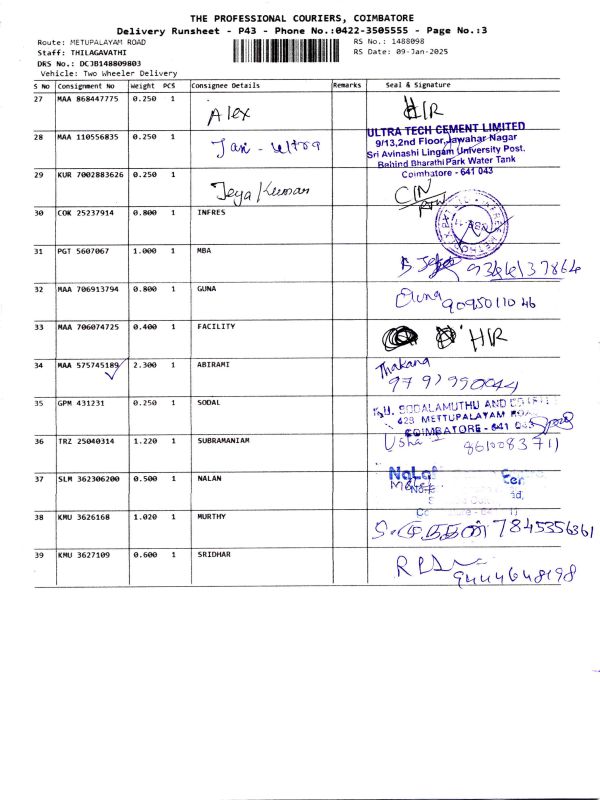 THE PROFESSIONAL COURIERS, COIMBATORE
Delivery Runsheet - P43 - Phone No.:0422-3505555 - Page No.:3
Route: METUPALAYAM ROAD RS No.: 1488098
Staff: THILAGAVATHI RS Date: 09-Jan-2025
DRS No.: DCJB148809803
Vehicle: Two Wheeler Delivery
S No Consignment No Weight PCS Consignee Details Remarks Seal & Signature
27 MAA 868447775 0.250 1 Alex HR
28 MAA 110556835 0.250 1
ULTRA TECH CEMENT LIMITED
9/13,2nd Floor,Jawahar Nagar
Sri Avinashi Lingam University Post.
Behind Bharathi Park Water Tank
Coimbatore - 641 043
29 KUR 7002883626 0.250 1 Jeya Kumar
30 COK 25237914 0.800 1 INFRES
31 PGT 5607067 1.000 1 MBA
32 MAA 706913794 0.800 1 GUNA Guna 9095011046
33 MAA 706074725 0.400 1 FACILITY HR
34 MAA 575745189 2.300 1 ABIRAMI Thakana
9791990044
35 GPM 431231 0.250 1 SODAL
SODALAMUTHU AND CO
428 METTUPALAYAM ROAD
COIMBATORE - 641 043
36 TRZ 25040314 1.220 1 SUBRAMANIAM Usha 8610083711
37 SLM 362306200 0.500 1 NALAN
38 KMU 3626168 1.020 1 MURTHY 7845356361
39 KMU 3627109 0.600 1 SRIDHAR 9444648198